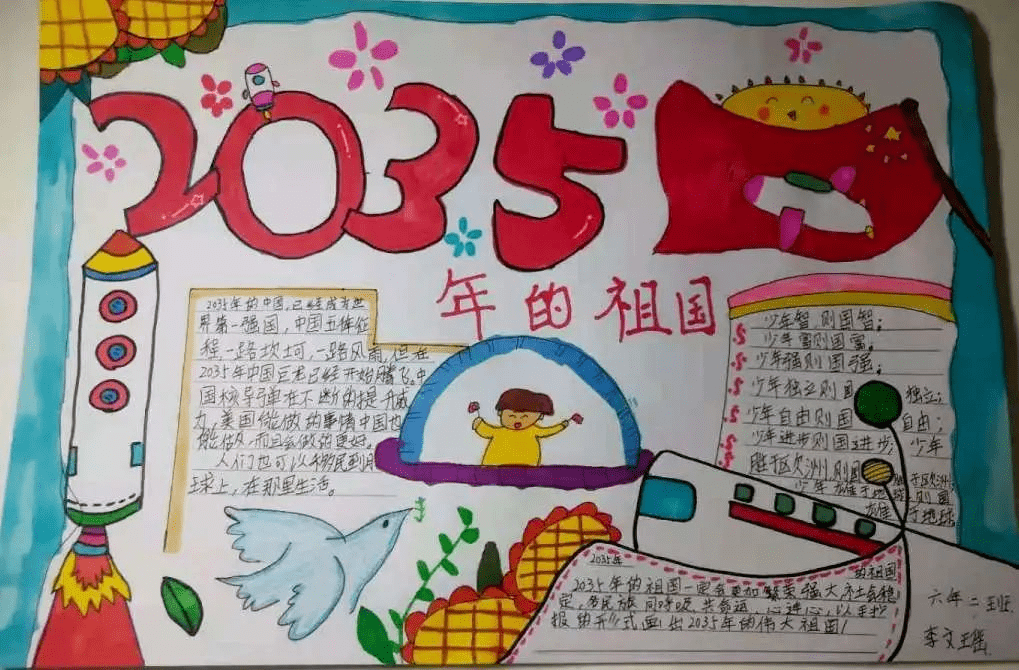 2035
年的祖国
2035年的中国,已经成为世
界第一强国,中国五年征
程一路坎坷,一路风雨,但在
2035年中国巨龙已经开始腾飞。中
国核导弹在不断的提升威
力,美国能做的事情中国也
能做,而且会做的更好。
人们也可以移民到月
球上,在那里生活。
少年智则国智;
少年富则国富。
少年强则国强;
少年独立则国 独立;
少年自由则国 自由;
少年进步则国进步; 少年
胜于欧洲,则国 于欧洲;
少年雄于地球则国
雄 于地球
2035年 的祖国
2035年的祖国一定会更加繁荣强大社会稳
定,多民族同呼吸共命运,心连心,以手抄
报的形式画出2035年的伟大祖国!
六年二班
李文